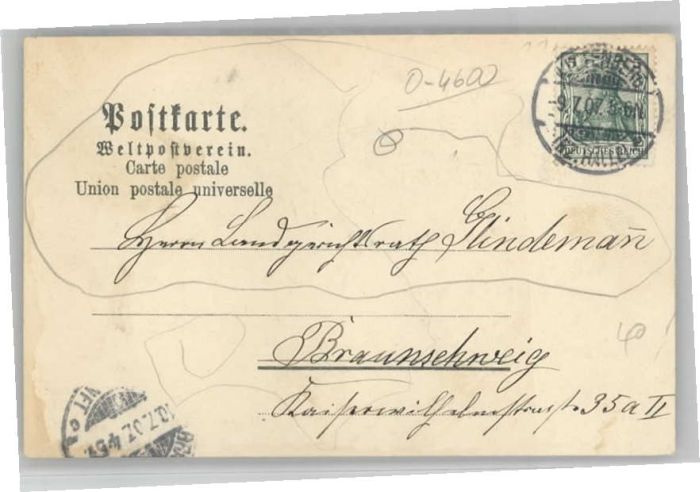 Postkarte.
Weltpostverein.
Carte postale
Union postale universelle
0-4600
WITTENBERG
9.7.07.
(BZ. HALLE)
DEUTSCHES REICH
Herrn Landgerichtsrath Glindemann̄
Braunschweig
Kaiserwilhelmstrasse 35a II
60
10.7.07.